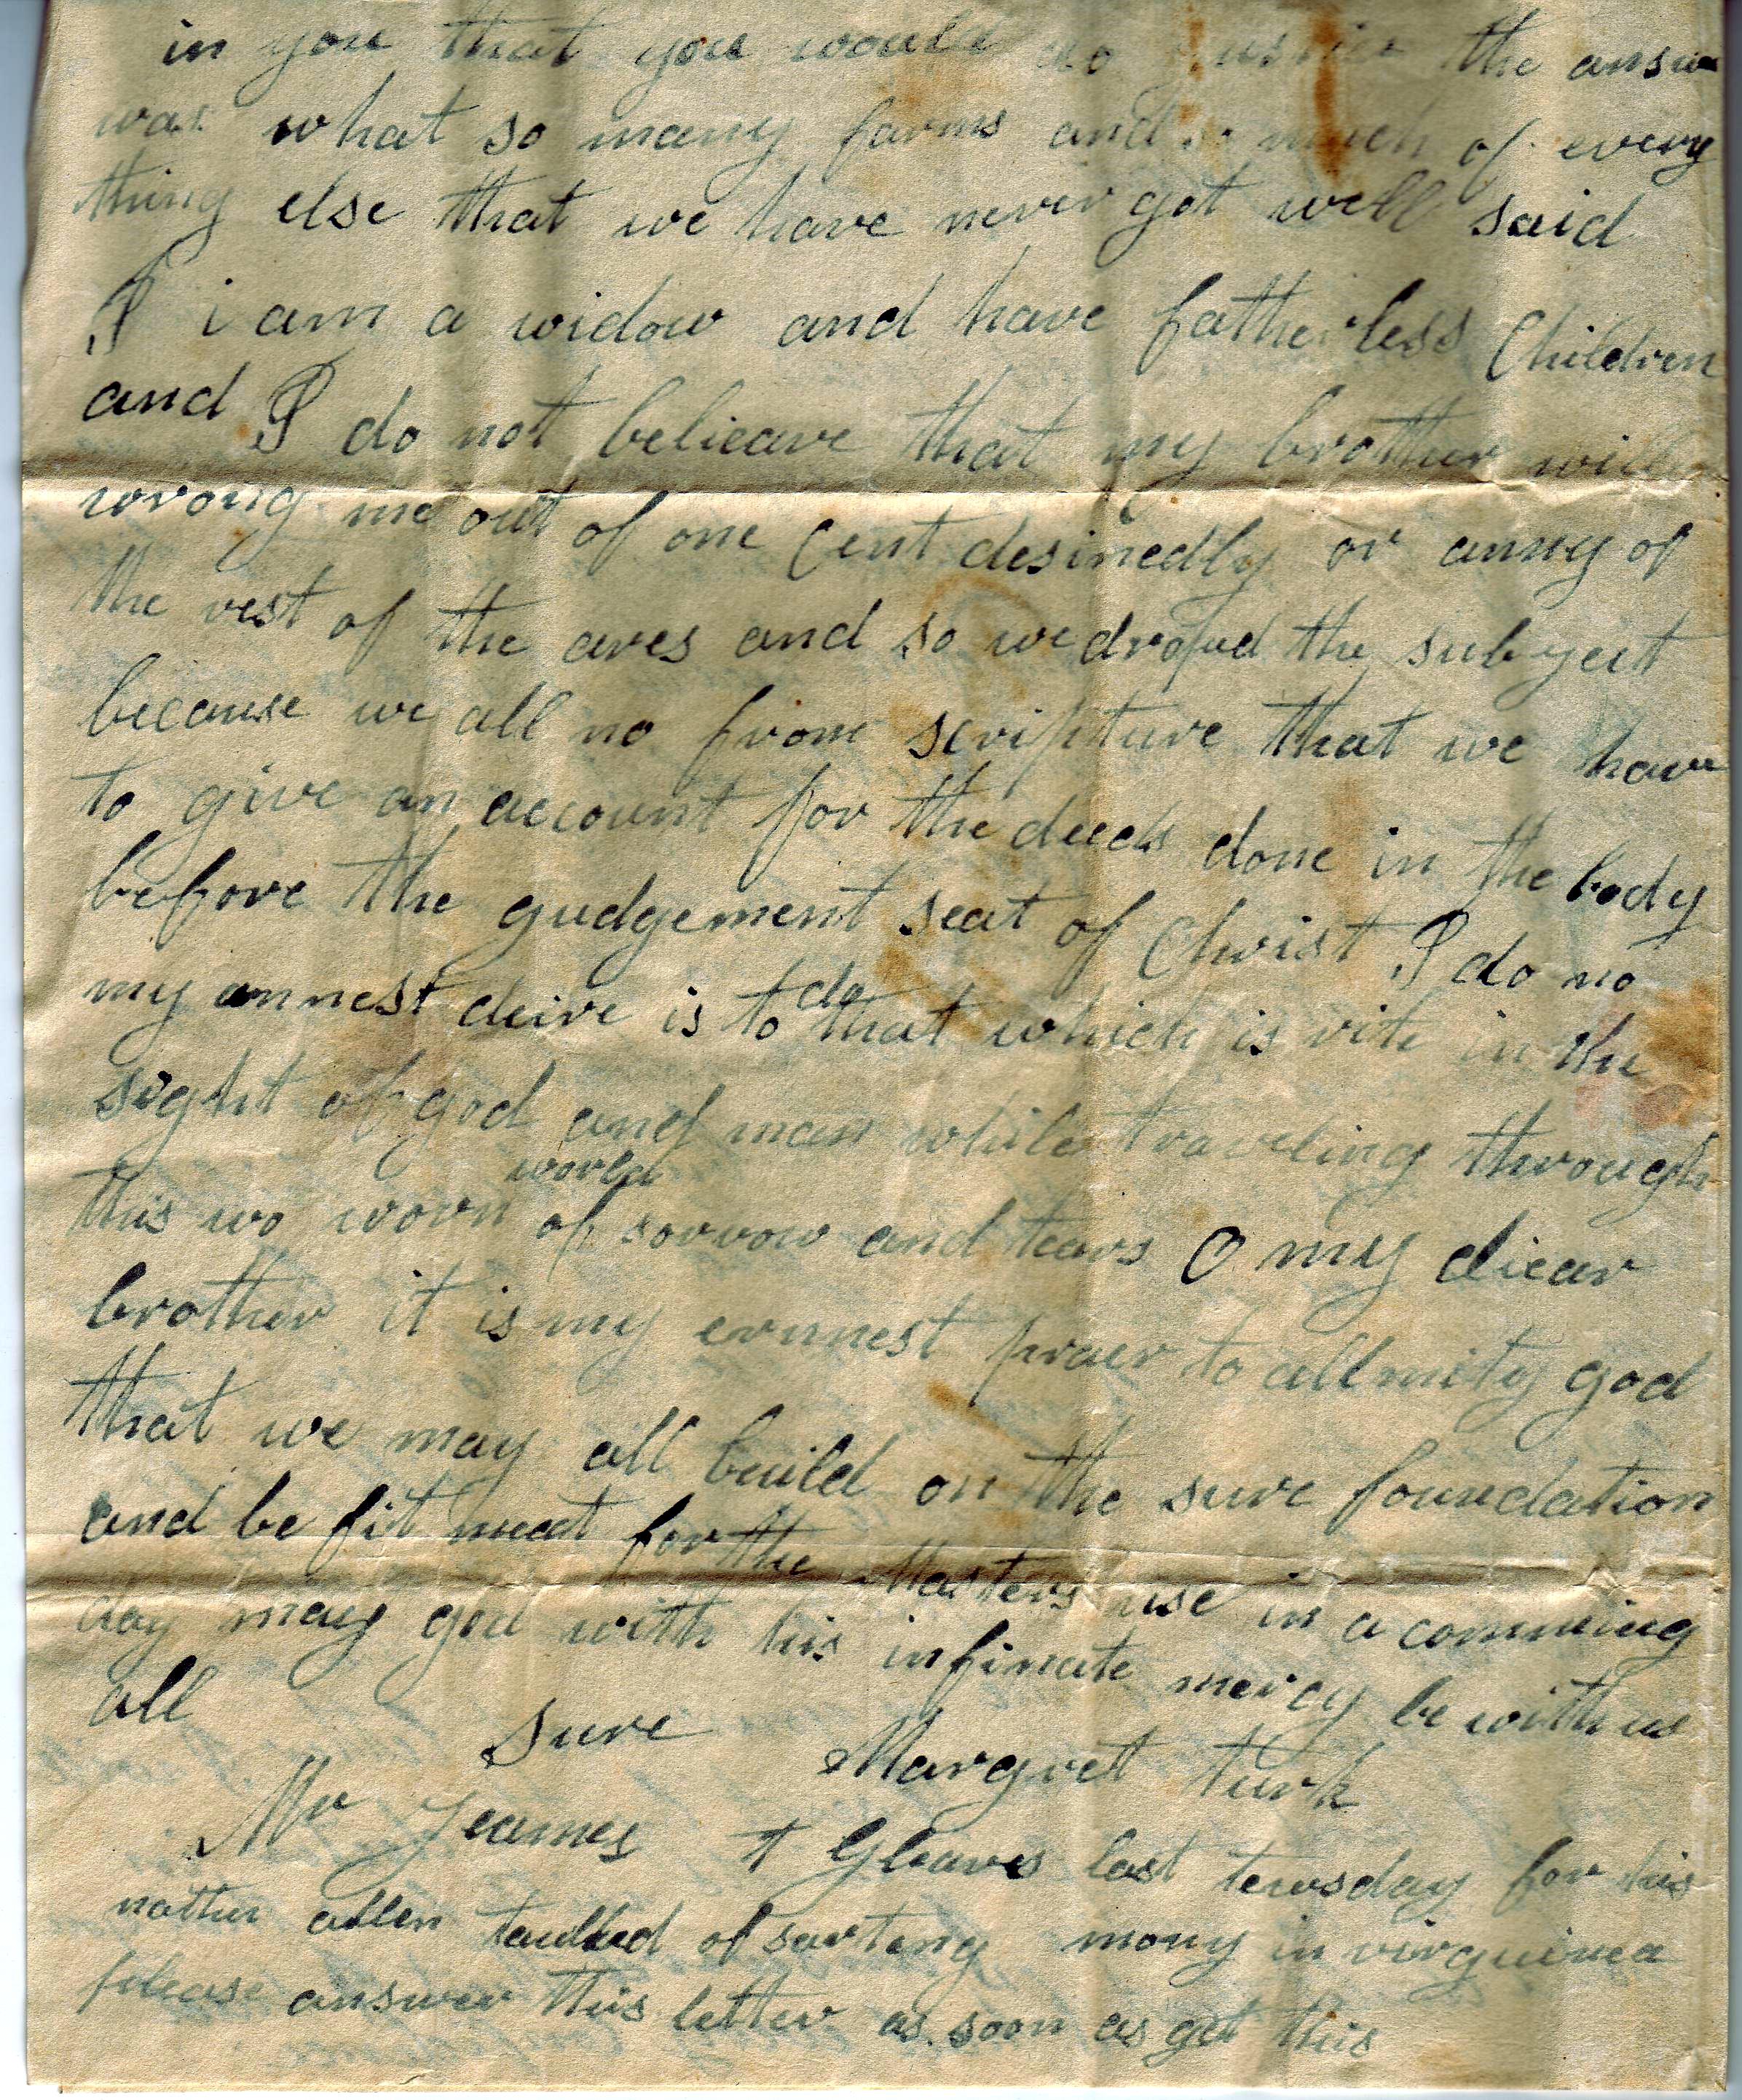 in you that you would do justice the answ
was what so many farms and so much of every
thing else that we have never got well said
I i am a widow and have fatherless Children
and I do not belieave that my brother will
wrong me out of one Cent desinedly or anny of
the rest of the ares and so we droped the subyect
because we all no from scripture that we have
to give an account for the deeds done in the body
before the gudgement seat of Christ I do no
my annest deire is to do that which is rite in the
sight of god and man while traveling through
this wo worn world of sorrow and tears O my diear
brother it is my ernnest praer to allmity god
that we may all build on the sure foundation
and be fit meat for the Masters use in a comming
day may god with his infinate mercy be with us
all
sure Margret turk
Mr Jeames T Gleaves last tewsday for his
nother allen taulked of sarting mony in virguinea
please answer this letter as soon as get this